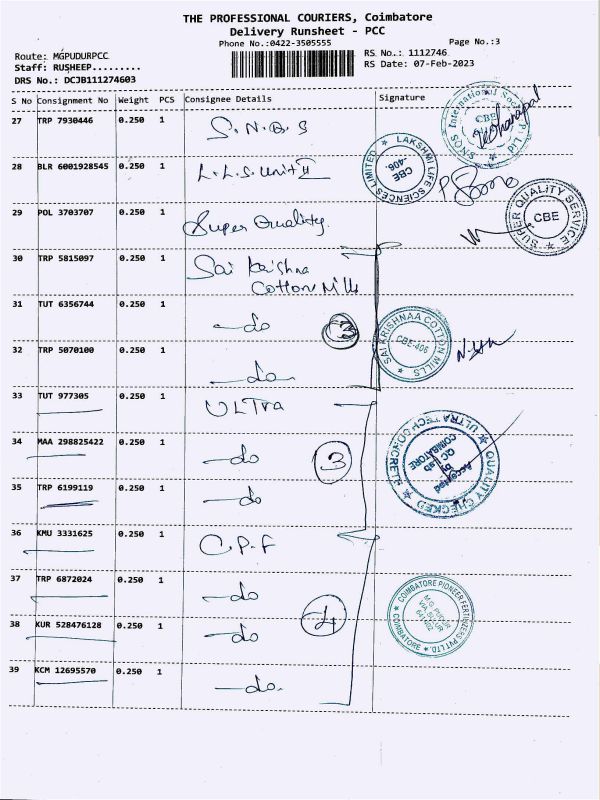 THE PROFESSIONAL COURIERS, Coimbatore
Delivery Runsheet - PCC
Phone No.:0422-3505555
Page No.:3
Route: MGPUDURPCC
RS No.: 1112746
Staff: RUSHEEP.........
RS Date: 07-Feb-2023
DRS No.: DCJB111274603
S No Consignment No Weight PCS Consignee Details Signature
27 TRP 7930446 0.250 1 S.N.Q.S
SNQS International Socks P. Ltd CBE
28 BLR 6001928545 0.250 1 L.L.S. Unit II
LAKSHMI LIFE SCIENCES LIMITED CBE -406.
29 POL 3703707 0.250 1 Super Quality.
SUPER QUALITY SERVICE CBE
30 TRP 5815097 0.250 1 Sai Krishna
Cotton Mills
31 TUT 6356744 0.250 1 —do 3
32 TRP 5070100 0.250 1 —do
SAI KRISHNAA COTTON MILLS CBE-406
33 TUT 977305 0.250 1 ULTRA
34 MAA 298825422 0.250 1 —do 3
ULTRA TECH CONCRETE QUALITY CHECKED
Accepted
by
QC Lab
COIMBATORE
35 TRP 6199119 0.250 1 —do
36 KMU 3331625 0.250 1 C.P.F
37 TRP 6872024 0.250 1 —do
COIMBATORE PIONEER FERTILIZERS PVT LTD. COIMBATORE
M.G. PUDUR
VIA SULUR
641402
38 KUR 528476128 0.250 1 —do 4
39 KCM 12695570 0.250 1 —do.